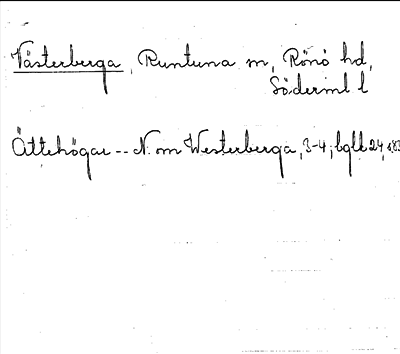 Västerberga, Runtuna sn, Rönö hd,
Söderml l
Ättehögar -- N. om Westerberga, 3-4; bgll 24, s83